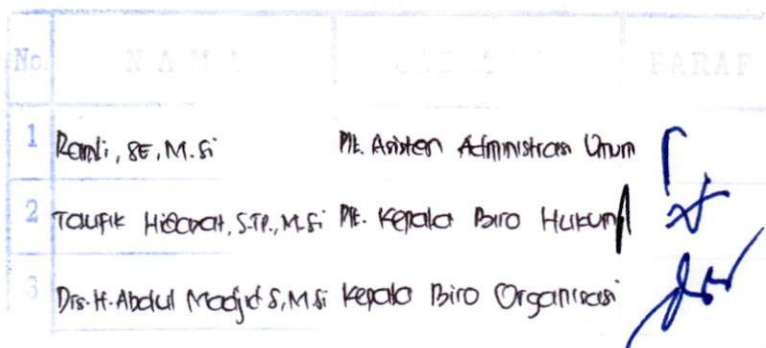 No. N A M A JABATAN PARAF
1 Ramli, SE, M.Si Plt. Asisten Administrasi Umum
2 Taufik Hidayat, S.TP., M.Si Plt. Kepala Biro Hukum
3 Drs. H. Abdul Madjid S, M.Si Kepala Biro Organisasi